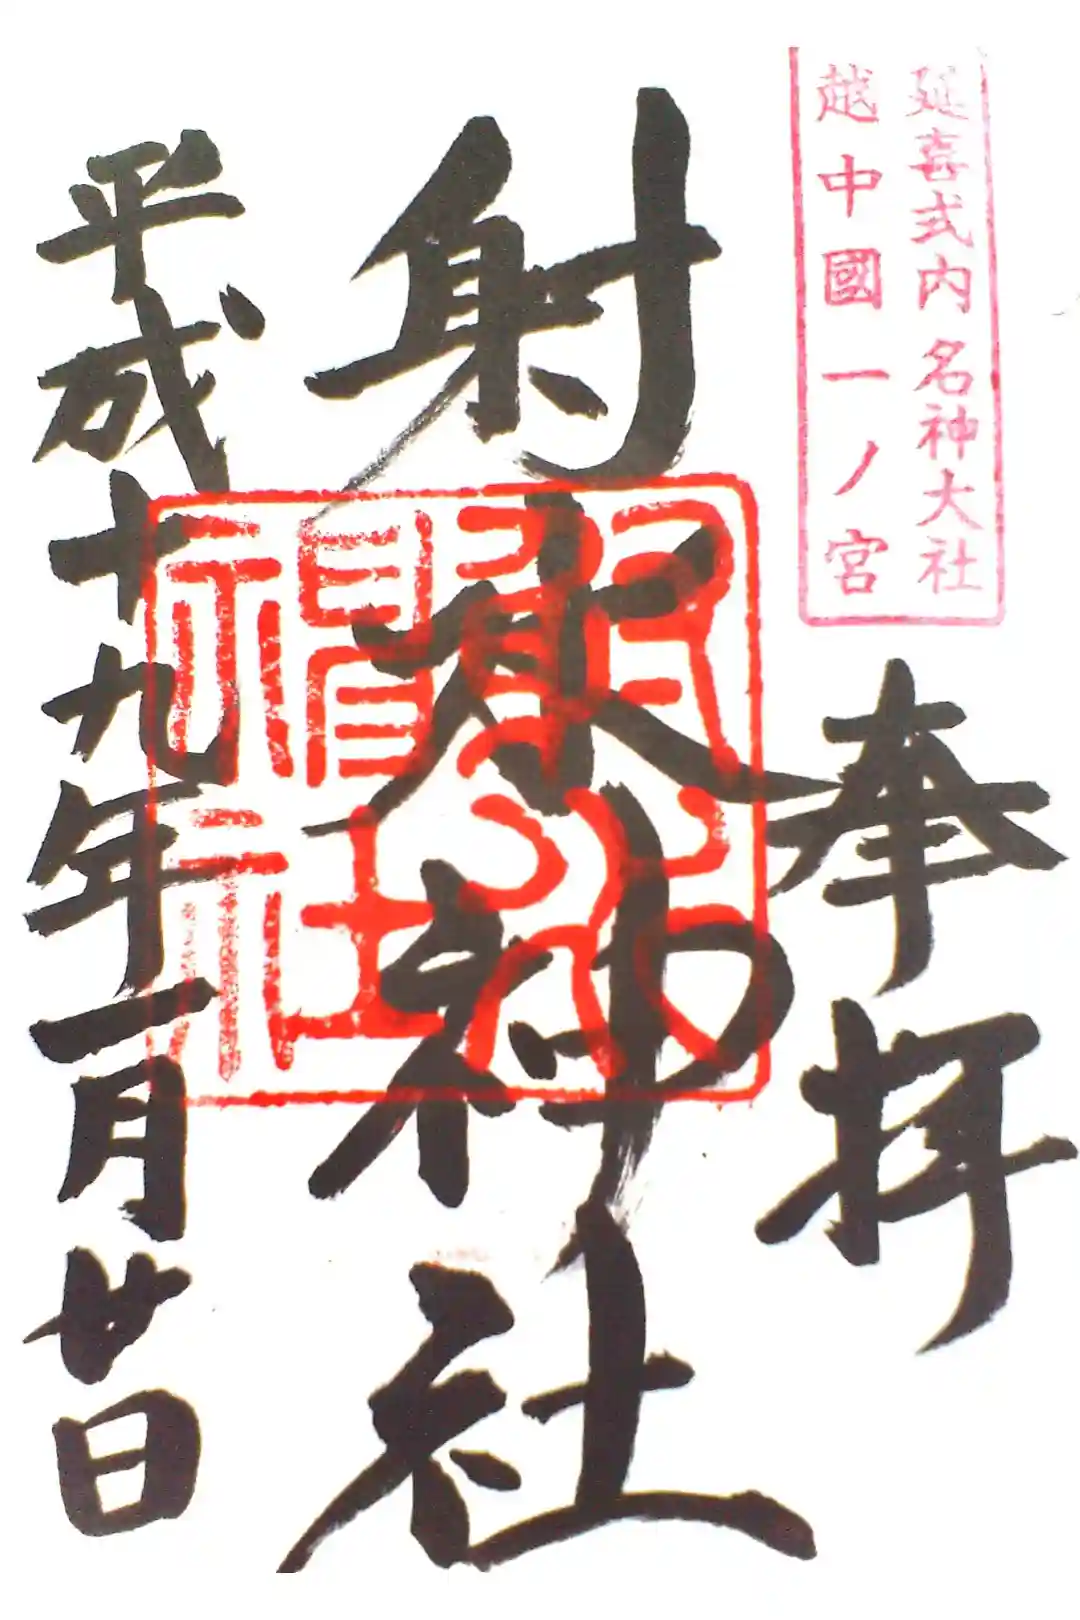 延喜式内名神大社
越中國一ノ宮
奉拝
射水神社
射水神社
平成十九年一月廿日